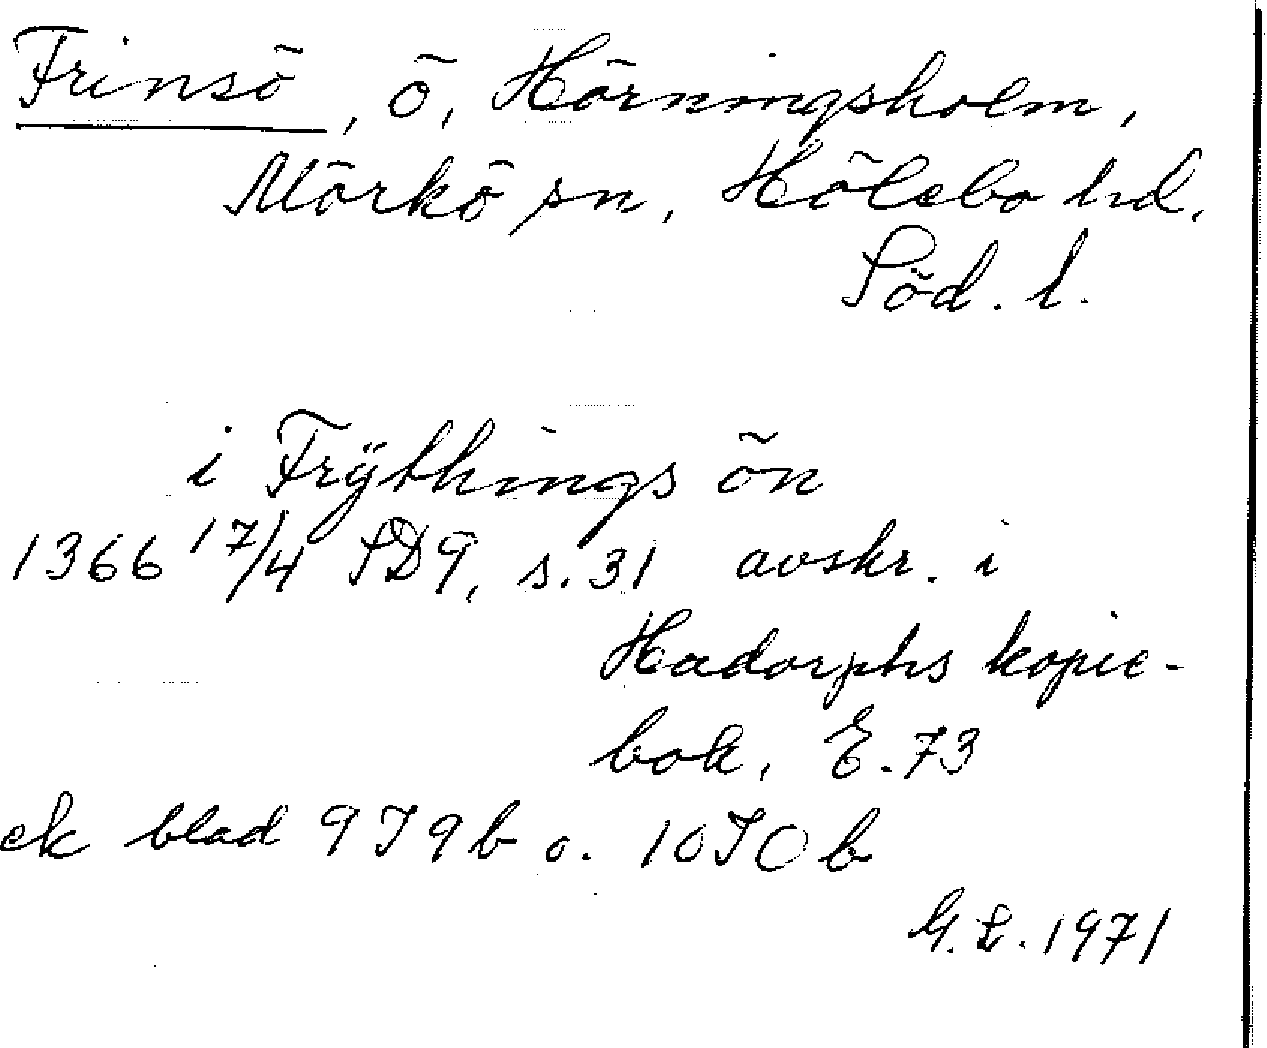 Frinsö, ö, Hörningsholm,
Mörkö sn, Hölebo hd.
Söd. l.
i Frÿthings ön
1366 17/4 SD9, s. 31 avskr. i
Hadorphs kopie-
bok, E. 73
ek blad 9J9b o. 10J0b
G. L. 1971